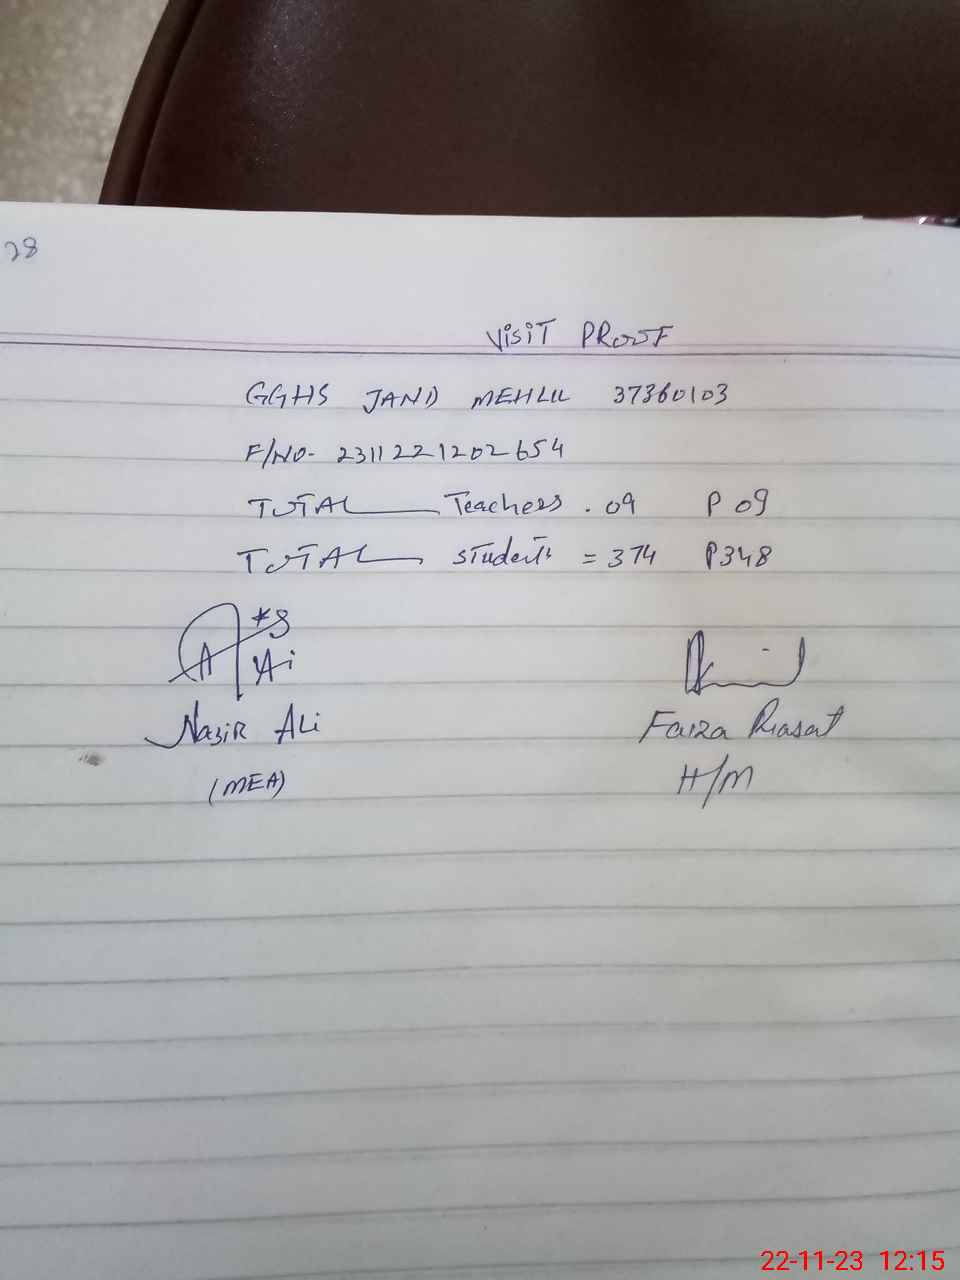 28
VISIT PROOF
GGHS JAND MEHLU 37360103
F/NO- 2311221202654
TOTAL Teachers . 09 P 09
TOTAL Students = 374 P348
Nazir Ali Faiza Riasat
(MEA) H/M
22-11-23 12:15